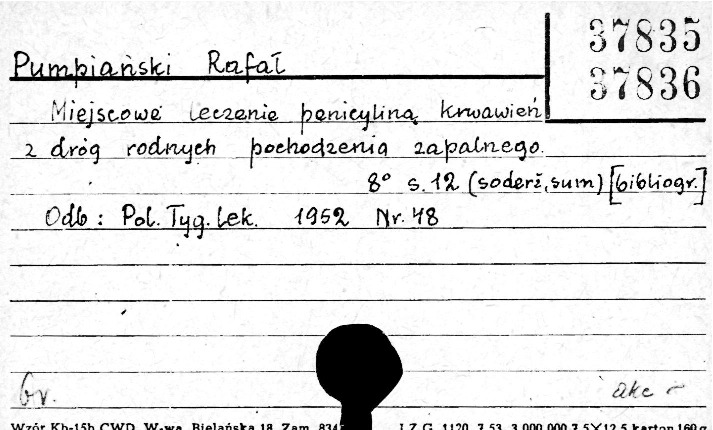 37835
37836
Pumpiański Rafał
Miejscowe leczenie penicyliną krwawień
z dróg rodnych pochodzenia zapalnego.
8° s. 12 (soderž, sum) [bibliogr.]
Odb: Pol. Tyg. Lek. 1952 Nr. 48
br. akc
Wzór Kb-15b CWD, W-wa, Bielańska 18, Zam. 834 Ł.Z.G. 1120. 7.53. 3.000.000 7,5×12,5 karton 160 g